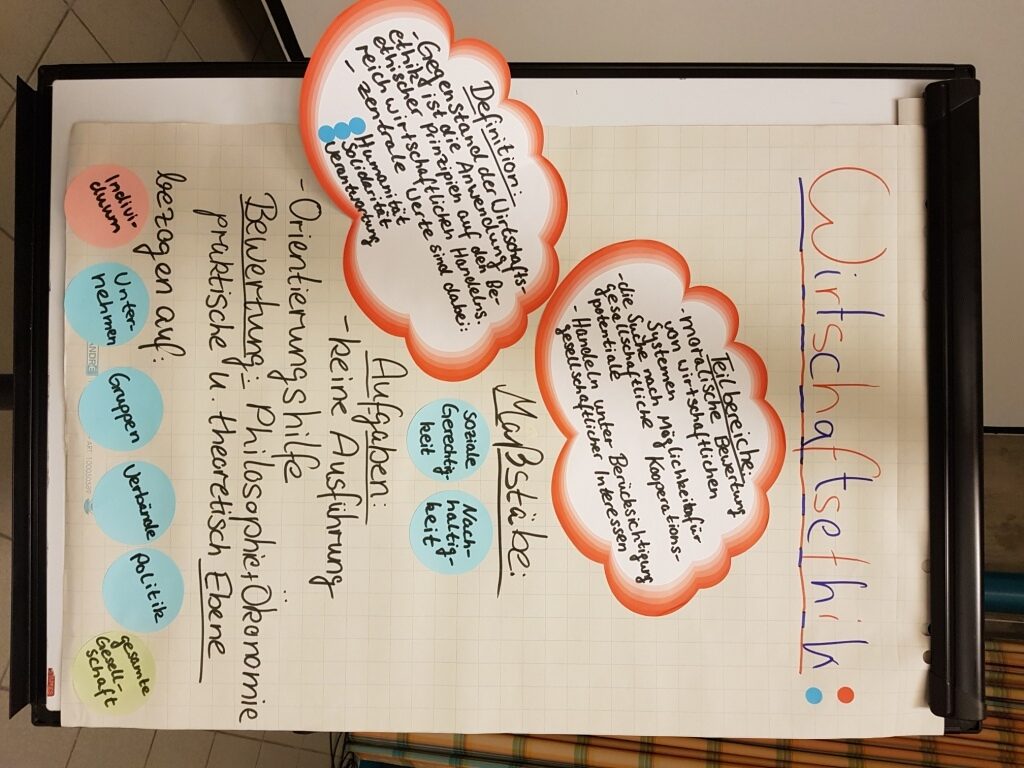 Wirtschaftsethik
Definition:
Gegenstand der Wirtschafts-
ethik ist die Anwendung
ethischer Prinzipien auf den Be-
reich wirtschaftlichen Handelns.
- zentrale Werte sind dabei:
Humanität
Solidarität
Verantwortung
Teilbereiche:
- moralische Bewertung
von wirtschaftlichen
Systemen
- die Suche nach Möglichkeiten für
gesellschaftliche Kooperations-
potentiale
- Handeln unter Berücksichtigung
gesellschaftlicher Interessen
Maßstäbe:
soziale
Gerechtig-
keit
Nach-
haltig-
keit
Aufgaben:
- keine Ausführung
- Orientierungshilfe
Bewertung: Philosophie + Ökonomie
praktische u. theoretisch Ebene
bezogen auf:
Indivi-
duum
Unter-
nehmen
Gruppen
Verbände
Politik
gesamte
Gesell-
schaft